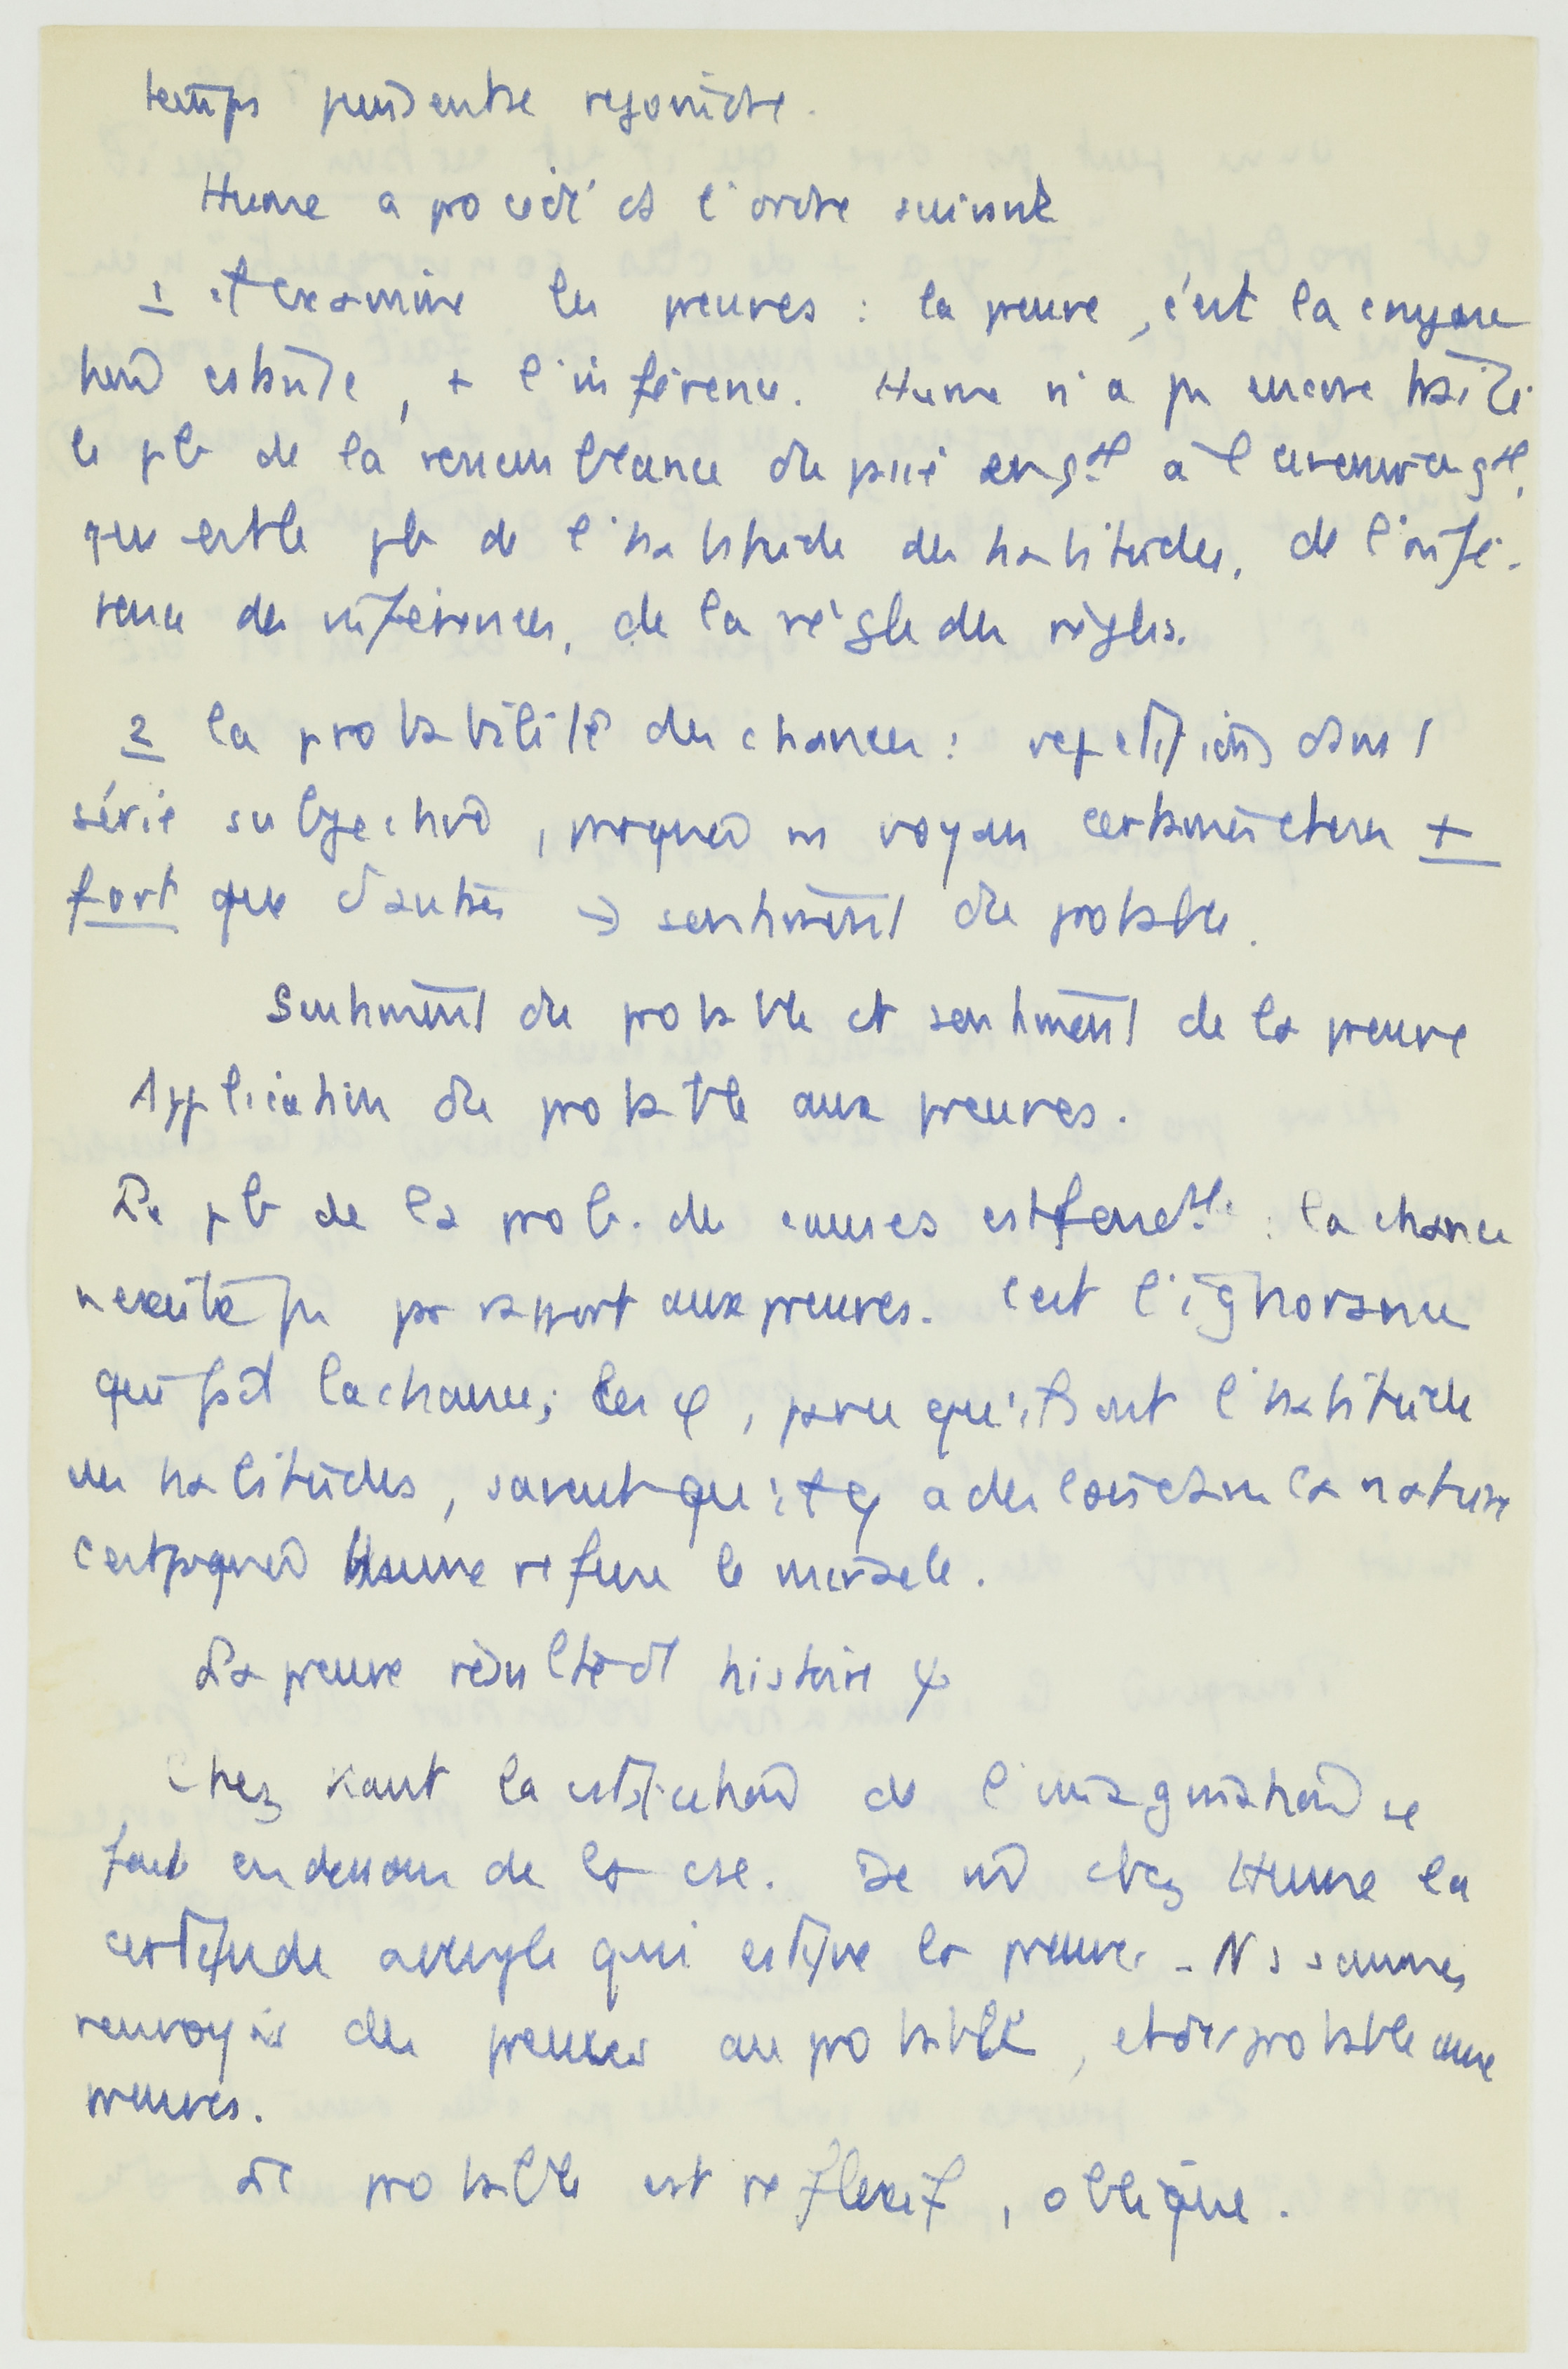 temps pend entre rejoindre.
Hume a procédé ds l'ordre suivant
1 il examine les preuves : la preuve, c'est la conjonc
tion cstnte, + l'inférence. Hume n'a pas encore traité
le pb de la ressemblance du passé engal à l'avenir engal,
qui est le pb de l'habitude des habitudes, de l'infé-
rence des inférences, de la règle des règles.
2 la probabilité des chances : répétition dans 1
série subjective, pourquoi ns voyons certaines choses +
fort que d'autres → sentiment du probable.
Sentiment du probable et sentiment de la preuve
Application du probable aux preuves.
Le pb de la prob. des causes est : la chance
n'existe pas par rapport aux preuves. C'est l'ignorance
qui fait la chance; les φ, parce qu'ils ont l'habitude
des habitudes, savent qu'il y a des lois dans la nature
C'est pourquoi Hume refuse le miracle.
La preuve résulte d1 histoire ψ
Chez Kant la de l'imagination se
fait en dessous de la cse. Ici chez Hume la
certitude aveugle qui estime la preuve. - Ns sommes
renvoyés des preuves au probable, et du probable aux
preuves.
Le probable est réflexif, oblique.